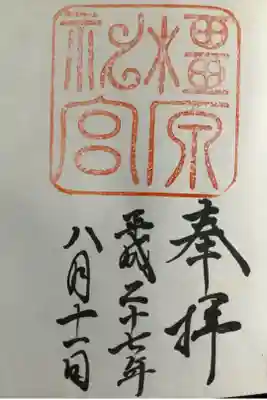 橿原神宮
奉拝
平成二十七年
八月十一日